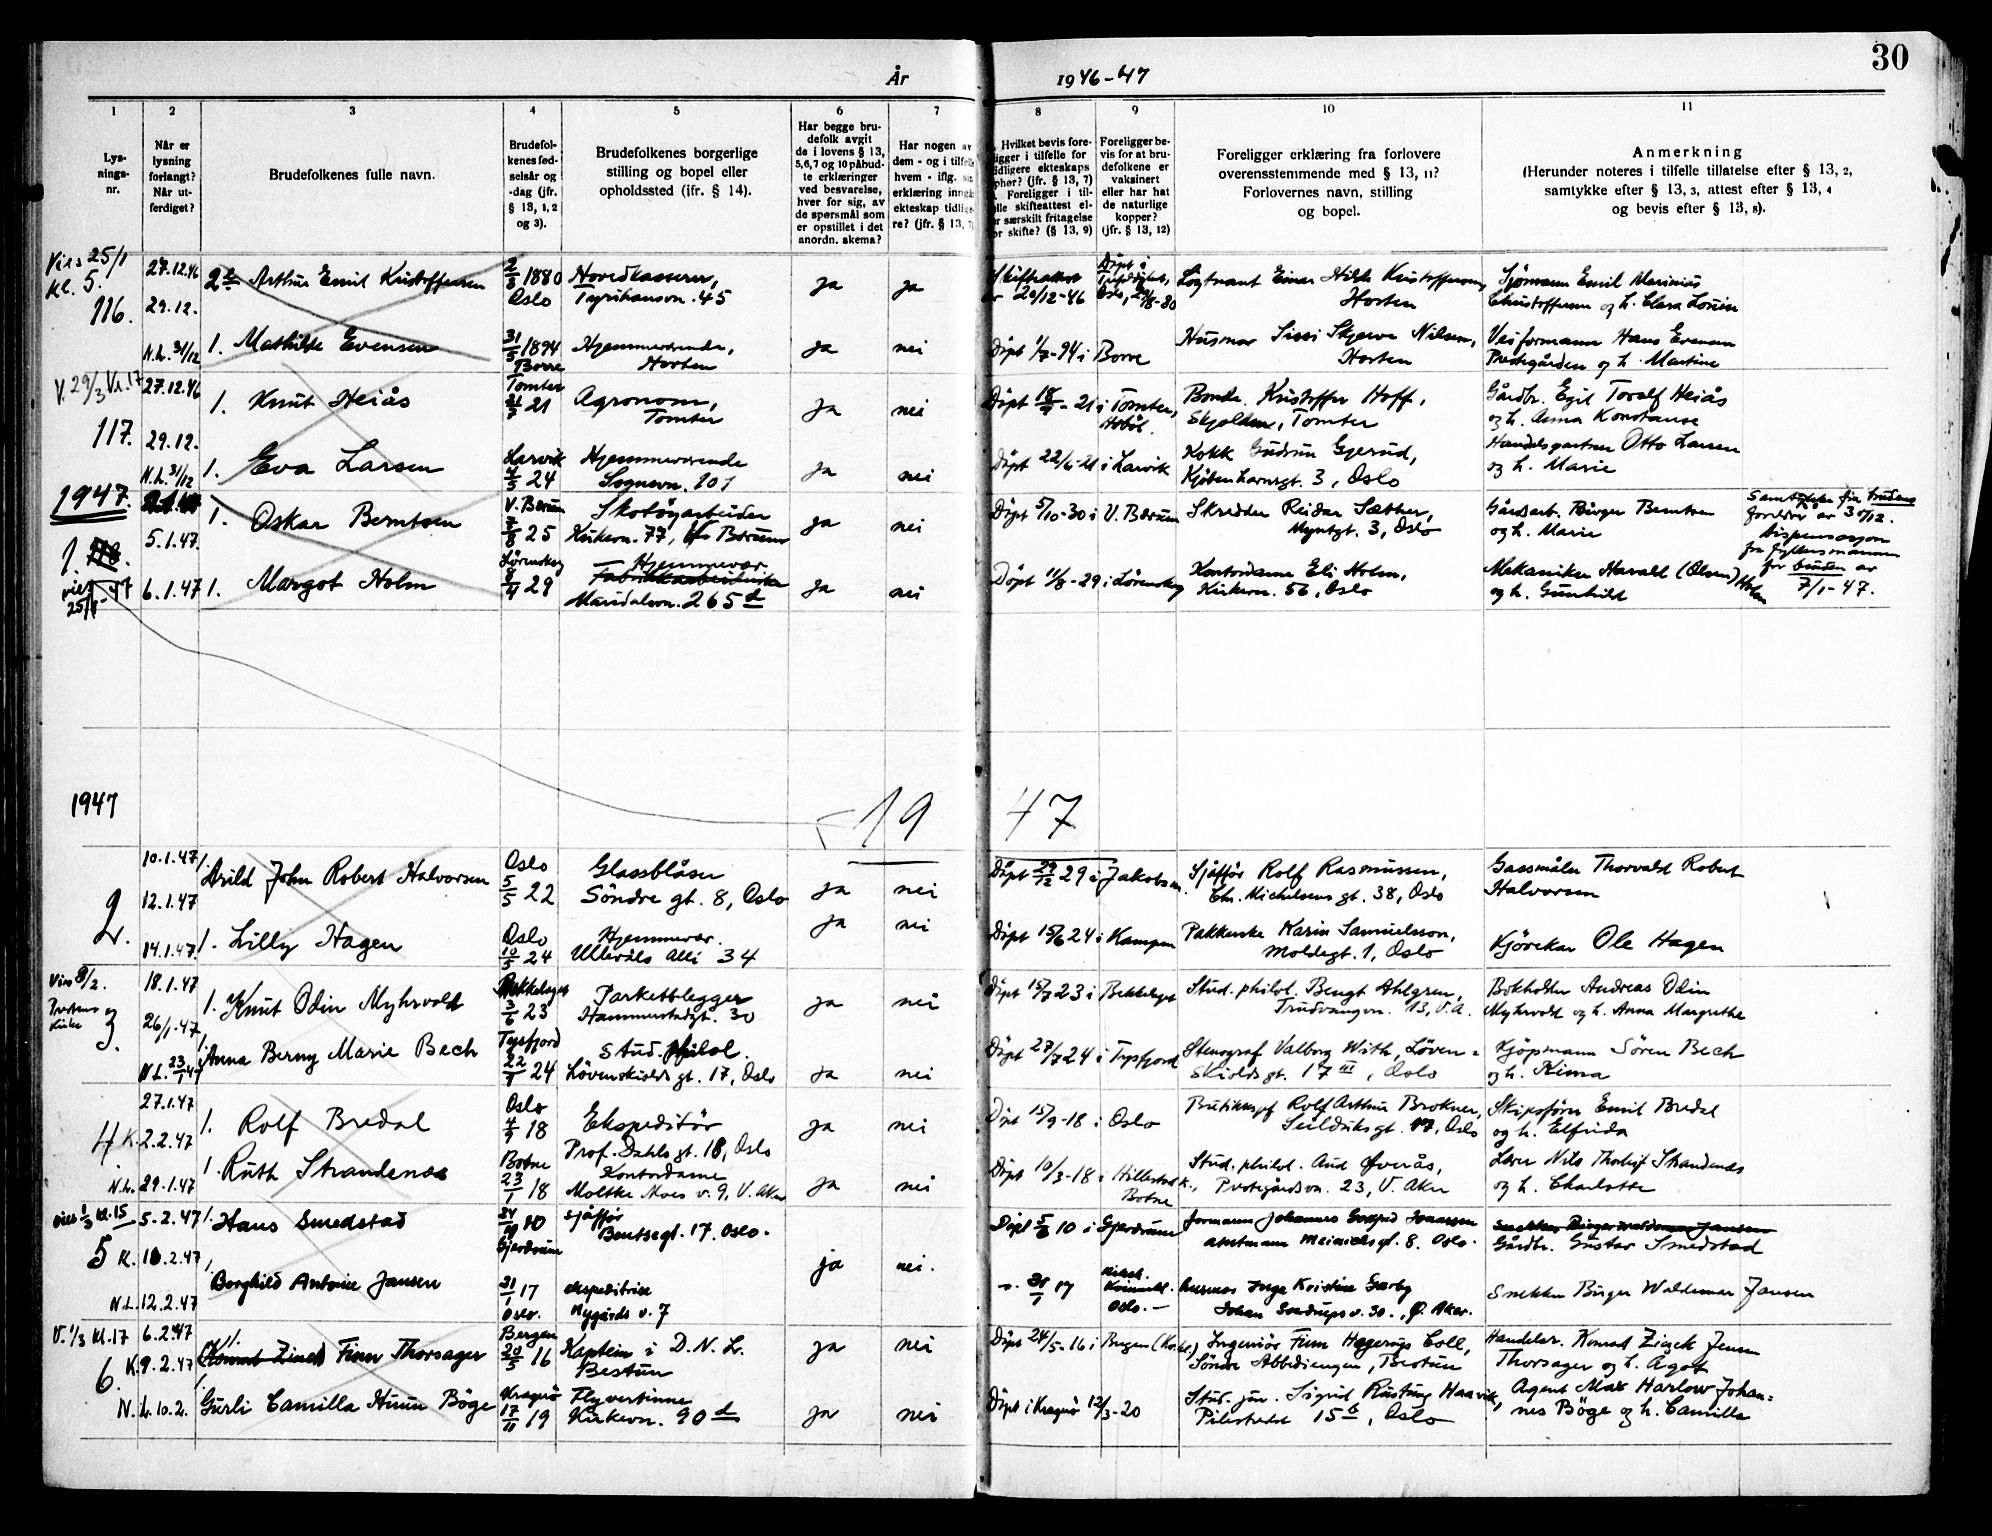 30
År 1946-47
1
2
3
4
5
6
7
8
9
10
11
Lys-
nings-
nr.
Når er
lysning
forlangt?
Når ut-
ferdiget?
Brudefolkenes fulle navn.
Brudefol-
kenes fød-
selsår og
-dag (jfr.
§ 13, 1, 2
og 3).
Brudefolkenes borgerlige
stilling og bopel eller
opholdssted (jfr. § 14).
Har begge bru-
defolk avgit
de i lovens § 13,
5,6,7 og 10 påbud-
te erklæringer
ved besvarelse,
hver for sig, av
de spørsmål som
er opstillet i det
anordn. skema?
Har nogen av
dem - og i tilfelle
hvem - iflg. sin
erklæring inngått
ekteskap tidlige-
re? (jfr. § 13, 7)
Hvilket bevis fore-
ligger i tilfelle for
tidligere ekteskaps
ophør? (jfr. § 13, 7)
Foreligger i til-
felle skifteattest el-
er særskilt fritagelse
for skifte? (§ 13, 9)
Foreligger be-
vis for at bru-
defolkene er
vaksinert
eller har hat
de naturlige
kopper?
(jfr. § 13, 12)
Foreligger erklæring fra forlovere
overensstemmende med § 13, 11?
Forlovernes navn, stilling
og bopel.
Anmerkning
(Herunder noteres i tilfelle tillatelse efter § 13, 2,
samtykke efter § 13, 3, attest efter § 13, 4
og bevis efter § 13, 8).
Vies 25/1
Kl. 5.
116.
27.12.46
29.12.
N.L. 31/12
2. Arthur Emil Kristoffersen
2/3 1880
Oslo
Hovedkasserer,
Tyrihansvn. 45
ja
ja
Skifteattest
av 20/12-46
Døpt i
Oslo, 29/8-80
Løytnant Einar Hilds Kristoffersen,
Horten
Sjømann Emil Marinius
Christoffersen og h. Clara Lovise
1. Mathilde Evensen
31/5 1894
Borre
Hjemmeværende,
Horten
ja
nei
Døpt 1/7-94 i Borre
Husmor Sissi Skjerve Nilsen,
Horten
Veiformann Hans Evensen
Prestegården og h. Martine
V. 29/3 Kl. 17
117.
27.12.46
29.12.
N.L. 31/12
1. Knut Heiås
Tomter
21/7 21
Agronom,
Tomter
ja
nei
Døpt 18/9-21 i Tomter,
Hobøl.
Bonde Kristoffer Hoff,
Skjolden, Tomter
Gårdbr. Egil Torolf Heiås
og h. Anna Konstanse
1. Eva Larsen
Larvik
4/5 24
Hjemmeværende
Sognsvn. 101
ja
nei
Døpt 22/6-24 i Larvik
Kokk Gudrun Gjerud,
Kjøbenhavnsgt. 3, Oslo
Handelsgartner Otto Larsen
og h. Marie
1947.
1. 118.
5.1.47.
6.1.47
1. Oskar Berntsen
V. Bærum
7/8 25
Skotøyarbeider
Kirkevn. 77, V. Bærum
ja
nei
Døpt 5/10-30 i V. Bærum
Skredder Reidar Sæther,
Myntgt. 3, Oslo
Gårdsarb. Birger Berntsen
og h. Marie
Samtykke fra brudens
foreldre av 30/12.
Dispensasjon
fra fylkesmannen
for bruden av
7/1-47.
vies
25/1-47
1. Margot Holm
Lørenskog
8/4 29
Hjemmevær.
Fabrikkarbeiderske
Maridalsvn. 265 d
ja
nei
Døpt 11/8-29 i Lørenskog
Kontordame Eli Holm,
Kirkevn. 56, Oslo
Mekaniker Harald (Olsen) Holm
og h. Gunhild
1947
1947
2.
10.1.47
12.1.47
14.1.47
1. Arild John Robert Halvorsen
Oslo
5/5 22
Glassblåser
Søndre gt. 8, Oslo
ja
nei
Døpt 29/12 29 i Jakobsen.
Sjåfør Rolf Rasmussen,
Chr. Michelsens gt. 38, Oslo
Gassmåler Thorvald Robert
Halvorsen
1. Lilly Hagen
Oslo
10/5 24
Hjemmevær.
Ullevåls Allé 34
ja
nei
Døpt 15/6 24 i Kampen
Pakkerske Karin Samuelsson,
Moldegt. 1, Oslo
Kjørekar Ole Hagen
Vies 8/2.
3
18.1.47
26/1.47
N.L. 23/1 47
1. Knut Odin Myhrvold
Bekkelaget
3/6 23
Parkettlegger
Hammerstadgt. 30
ja
nei
Døpt 15/7 23 i Bekkelaget
Stud. philol. Bengt Ahlgren,
Trudvangvn. 13, V.A.
Bokholder Andreas Odin
Myhrvold og h. Anna Margrethe
1. Anna Berny Marie Bech
Tysfjord
22/1 24
Stud. philol.
Løvenskiolds gt. 17, Oslo
ja
nei
Døpt 27/7 24 i Tysfjord
Stenograf Valborg With, Løven=
skioldsgt. 17 III, Oslo
Kjøpmann Søren Bech
og h. Rima
4
27.1.47
K. 2.2.47
N.L. 29.1.47
1. Rolf Bredal
Oslo
4/9 18
Ekspeditør
Prof. Dahls gt. 18, Oslo
ja
nei
Døpt 15/9-18 i Oslo
Butikksjef Rolf Arthur Brokner,
Seilduksgt. 17, Oslo
Skipsfører Emil Bredal
og h. Elfrida
1. Ruth Strandenæs
Botne
23/1 18
Kontordame
Moltke Moes v. 9, V. Aker
ja
nei
Døpt 10/3-18 i Hillestad k.,
Botne
Stud. philol. Aud Øverås,
Prestegårdsvn. 23, V. Aker
Lærer Nils Thorleif Strandenæs
og h. Charlotte
vies 1/3 kl. 15
5
5-2.47
K. 16.2.47
N.L. 12.2.47
1. Hans Smedstad
Gjerdrum
Sjåfør
Bentsegt. 17. Oslo.
ja
nei.
Døpt 5/6 10 i Gjerdrum
Gårdbr. Gustav Smedstad
1. Borghild Antonie Jansen
31/1 17
Oslo.
ekspeditrise
Nygårds v. 7
Oslo.
Johan Sverdrups v. 30., Ø. Aker.
Snekker Birger Waldemar Jansen
V. 1/3 kl. 17
6.
6.2.47
K. 9.2.47
N.L. 10.2.
1. Konrad Zineck Finn Thorsager
Bergen
20/5 16
Kaptein i D.N.L.
Bestun
ja
nei
Døpt 24/5-16 i Bergen
Ingeniør Finn Hagerup Coll,
Søndre Abbediengen, Bestun
Handelsr. Konrad Zineck Jensen
Thorsager og h. Agot
1. Gurli Camilla Huun Bøge
Kragerø
17/11 19
Flyvertinne
Kirkevn. 90 d
ja
nei
Døpt i Kragerø 12/3-20
Stud. jur. Sigrid Rustung Haavik,
Pilestredet 15 b, Oslo
Agent Max Harlow Johan=
nes Bøge og h. Camilla